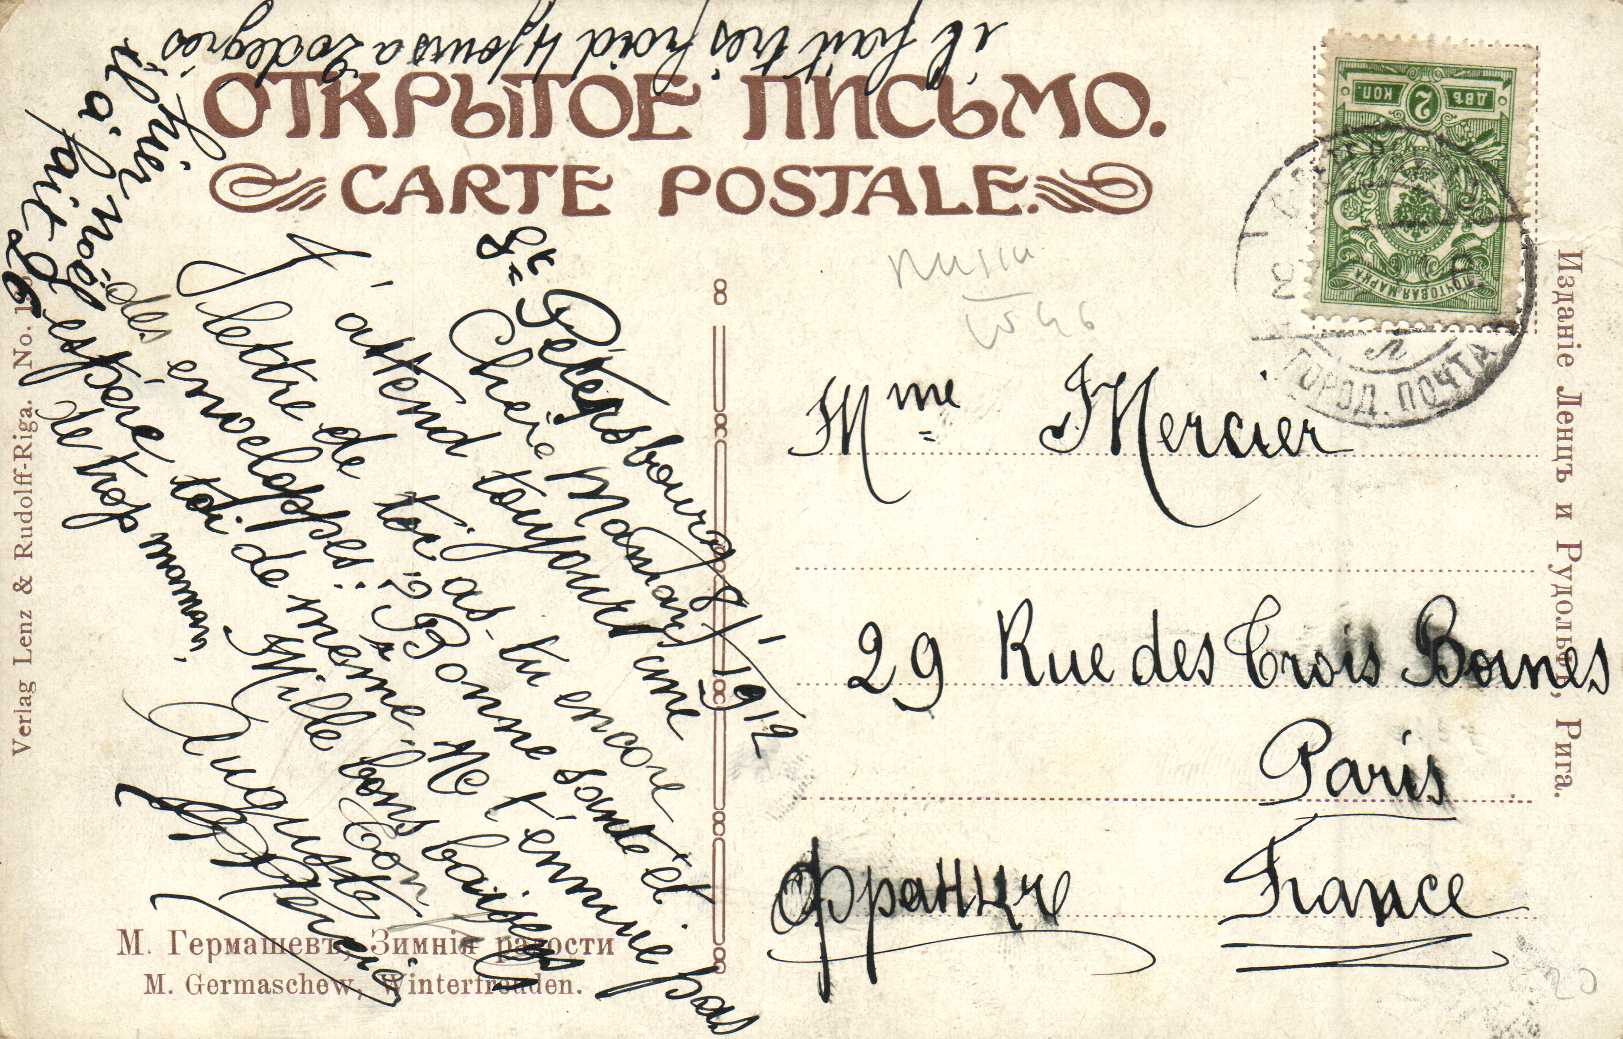 il fait très froid 4 jours a 20 degrés
ОТКРЫТОЕ ПИСЬМО.
CARTE POSTALE.
ДВѢ 2 КОП.
ПОЧТОВАЯ МАРКА
ГОРОД. ПОЧТА
Mme Mercier
29 Rue des Trois Bornes
Paris
France
St Pétersbourg 8/1 1912
Chère Maman
J'attend toujours une
lettre de toi, as-tu encore
des enveloppes? Bonne santé et
espère toi de même. Ne t'ennuie pas
de trop maman.
Mille bons baisers
Ton
Auguste
Mercier
hier noël
il a fait 26
М. Гермашевъ, Зимнія радости
M. Germaschew, Winterfreuden.
Verlag Lenz & Rudolff-Riga. No.
Изданіе Ленцъ и Рудольфъ, Рига.
20